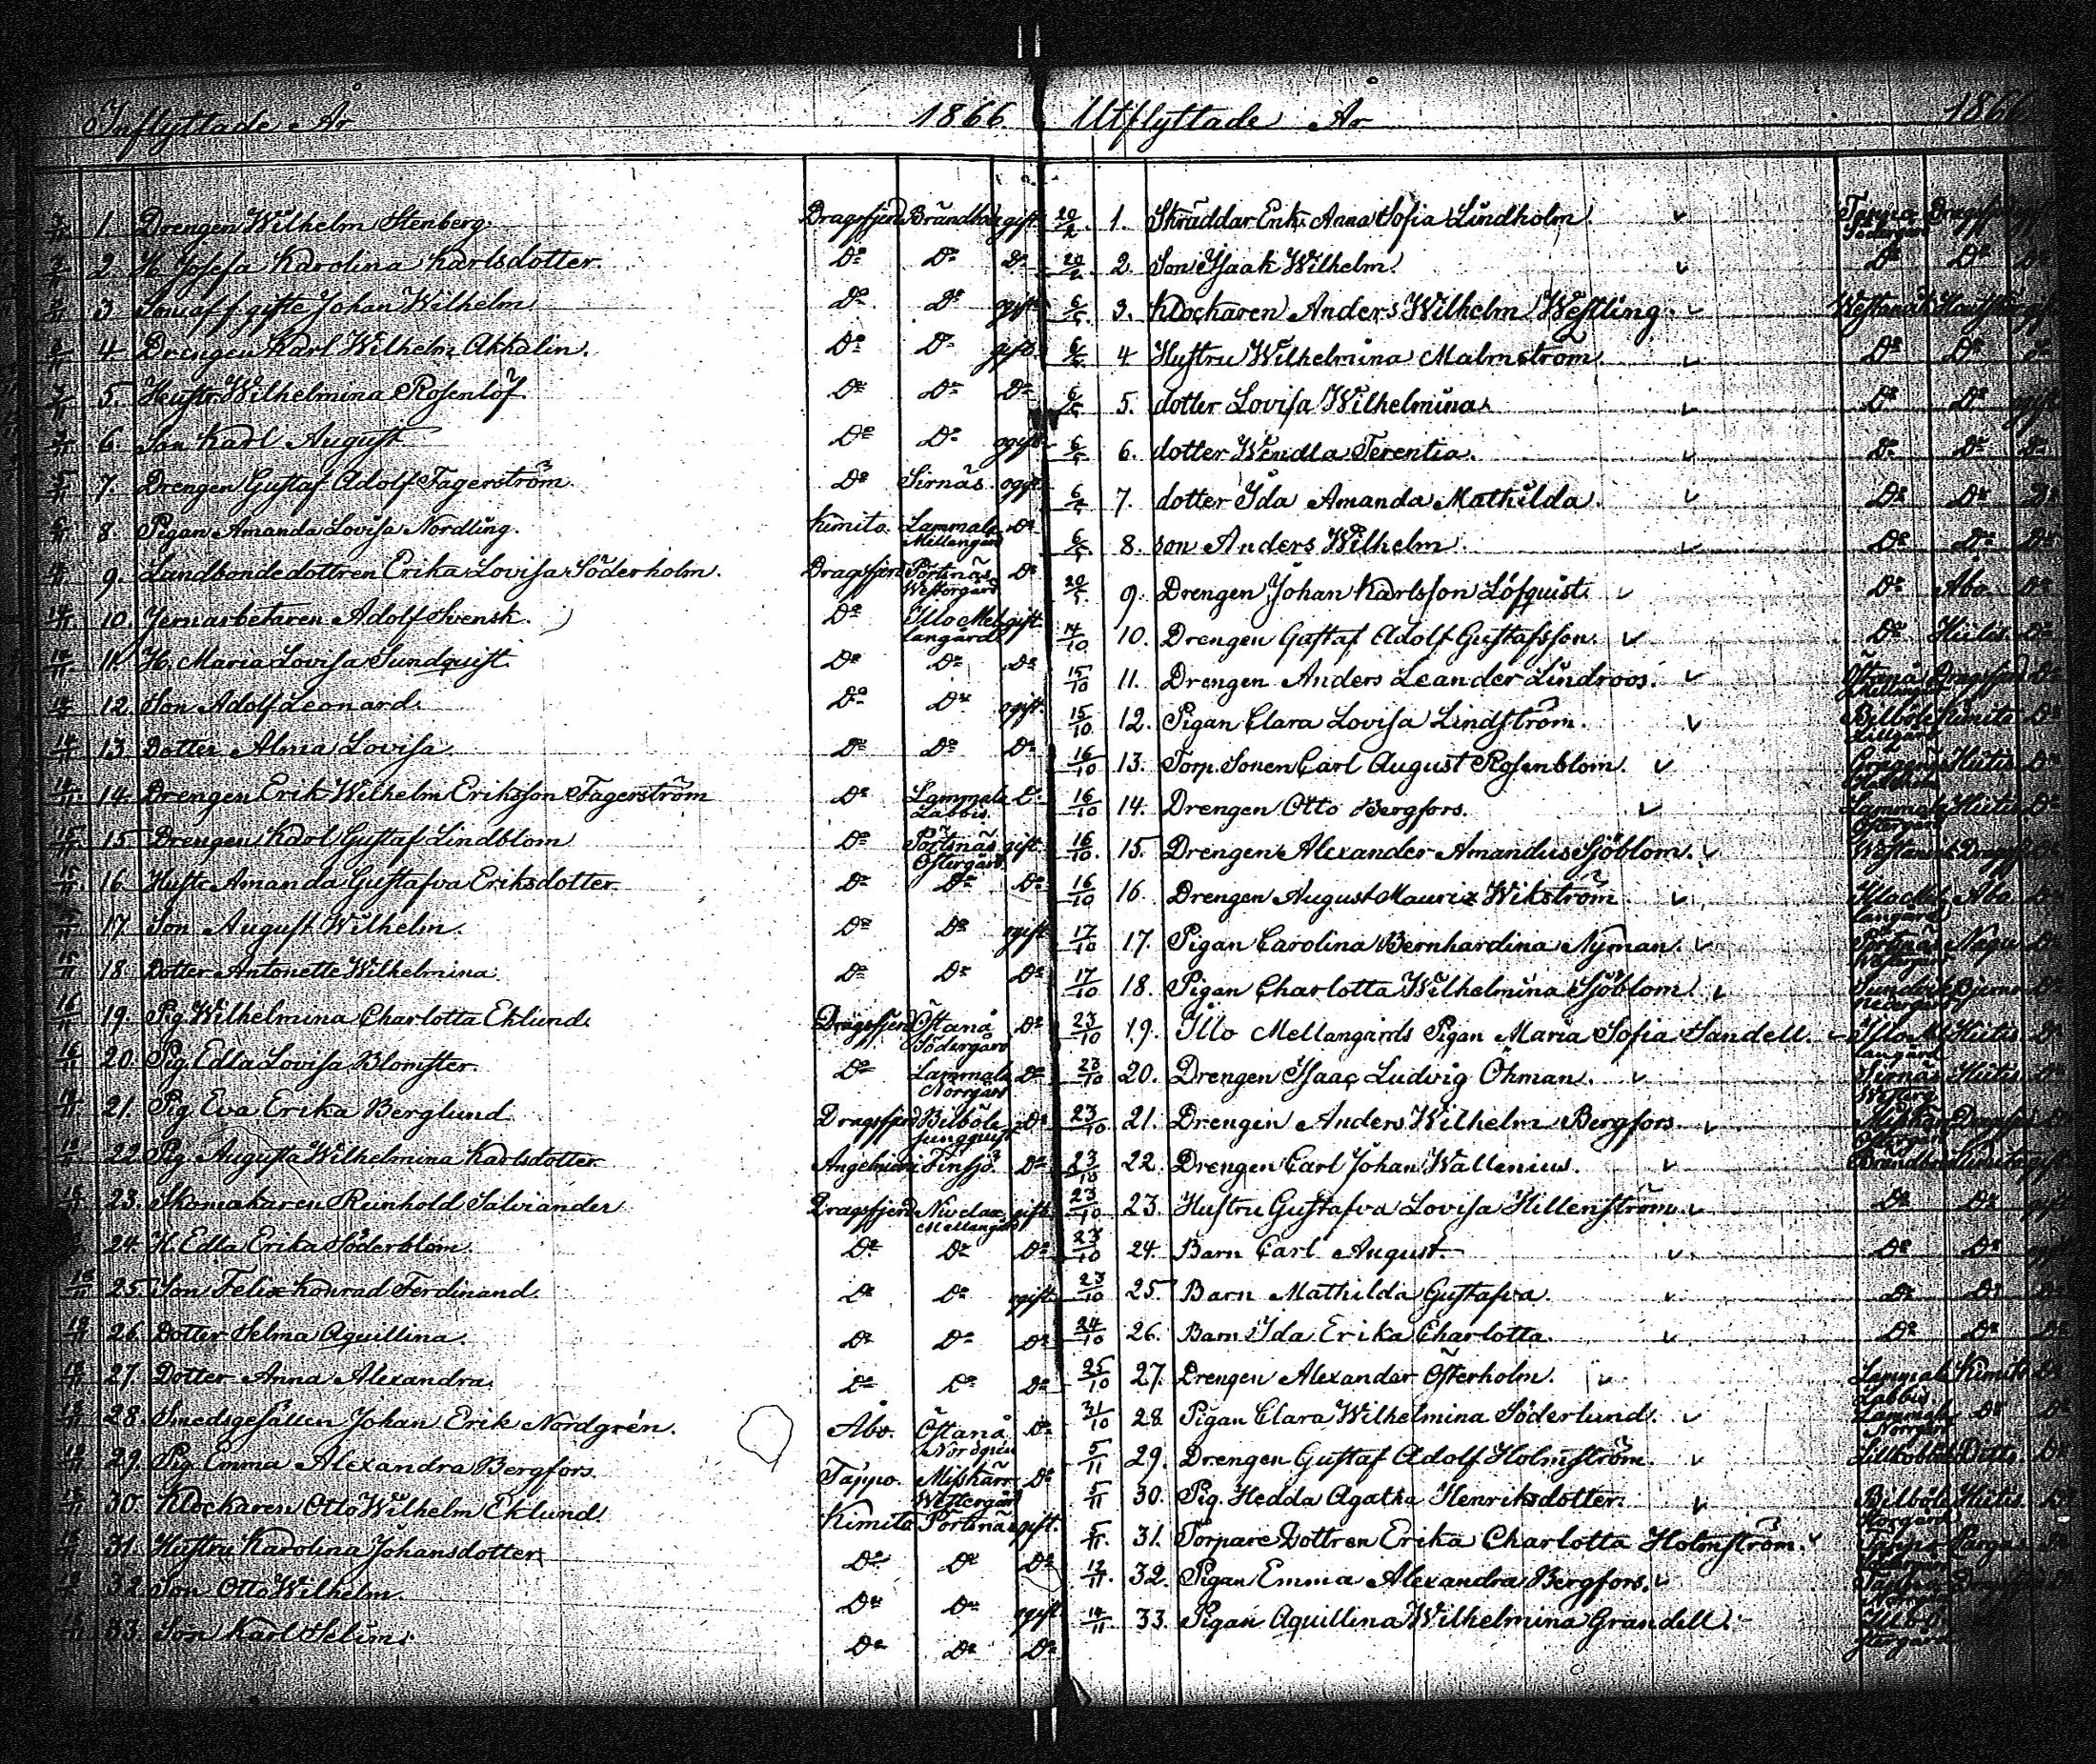 Inflyttade År 1866.
1. Drengen Wilhelm Stenberg. Dragsfjerd Brändboda gift
2. H. Josefa Karolina Karlsdotter. Do Do Do
3. Son af f. gifte Johan Wilhelm Do Do ogift
4. Drengen Karl Wilhelm Akkalin. Do Do gift.
5. Hustr. Wilhelmina Rosenlöf. Do Do Do
6. Son Karl August Do Do ogift
7. Drengen Gustaf Adolf Fagerström Do Sirnäs. ogift
8. Pigan Amanda Lovisa Nordling. Kimito. Lammala Mellangård Do
9. Landbondedottren Erika Lovisa Söderholm. Dragsfjerd Pörtsnäs Westergård Do
10. Jernarbetaren Adolf Svensk. Do Illo Mellangård gift.
11. H. Maria Lovisa Sundquist. Do Do Do
12. Son Adolf Leonard. Do Do ogift.
13. Dotter Alma Lovisa Do Do Do
14. Drengen Erik Wilhelm Eriksson Fagerström Do Lammala Labbis. Do
15. Drengen Karl Gustaf Lindblom Do Pörtsnäs Östergård gift
16. Hustr Amanda Gustafva Eriksdotter Do Do Do
17. Son August Wilhelm. Do Do ogift
18. Dotter Antonette Wilhelmina Do Do Do
19. Pig. Wilhelmina Charlotta Eklund. Dragsfjerd Östanå Södergård Do
20. Pig. Edla Lovisa Blomster. Do Lammala Norrgård Do
21. Pig. Eva Erika Berglund Dragsfjerd Bilböle Ljungquist Do
22. Pig. Augusta Wilhelmina Karlsdotter Angelniemi Finsjö Do
23. Skomakaren Reinhold Salviander Dragsfjerd Nivelax Mellangård gift
24. H. Edla Erika Söderblom. Do Do Do
25. Son Felix Konrad Ferdinand. Do Do ogift
26. Dotter Selma Aquillina. Do Do Do
27. Dotter Anna Alexandra. Do Do Do
28. Smedsgesällen Johan Erik Nordgrén. Åbo. Östanå Nordgrén Do
29. Pig. Emma Alexandra Bergfors. Tappo. Misskärr Westergård Do
30. Klockaren Otto Wilhelm Eklund. Kimito Pörtsnäs gift.
31. Hustru Karolina Johansdotter Do Do Do
32. Son Otto Wilhelm. Do Do ogift
33. Son Karl Selim. Do Do Do
Utflyttade År 1866
20/2 1. Skräddar Enk. Anna Sofia Lindholm Södergård Dragsfjerd
20/2 2. Son Isaak Wilhelm. Do Do Do
6/5 3. Klockaren Anders Wilhelm Westling. Westanå
6/5 4 Hustru Wilhelmina Malmström. Do Do
6/5 5. dotter Lovisa Wilhelmina. Do Do ogift
6/5 6. dotter Wendla Terentia. Do Do Do
6/5 7. dotter Ida Amanda Mathilda. Do Do Do
6/5 8. son Anders Wilhelm. Do Do Do
20/5 9. Drengen Johan Karlsson Löfquist. Do Åbo. Do
14/10 10. Drengen Gustaf Adolf Gustafsson. Do Hitis. Do
15/10 11. Drengen Anders Leander Lindroos. Östanå Mellangård Dragsfjerd Do
15/10 12. Pigan Clara Lovisa Lindström. Bilböle Lillgård Kimito Do
16/10 13. Torp. Sonen Carl August Rosenblom. Hitis Do
16/10 14. Drengen Otto Bergfors. Lammala Östergård Hitis Do
16/10 15. Drengen Alexander Amandus Sjöblom. Westanå Dragsf
16/10 16. Drengen August Mauriz Wikström Illo Mellangård Åbo Do
17/10 17. Pigan Carolina Bernhardina Nyman. Pörtsnäs Westergård Nagu Do
17/10 18. Pigan Charlotta Wilhelmina Sjöblom. Sundvik Nedergård Bjerno Do
23/10 19. Illo Mellangårds Pigan Maria Sofia Sandell. Illo Mellangård Hitis Do
23/10 20. Drengen Isaac Ludvig Öhman. Sirnäs Westerg Hitis Do
23/10 21. Drengen Anders Wilhelm Bergfors Misskärr Östergård Dragsfjerd Do
23/10 22. Drengen Carl Johan Wallenius. Brändboda Kimito gift
23/10 23. Hustru Gustafva Lovisa Hillenström. Do Do gift
23/10 24. Barn Carl August Do Do ogift
23/10 25. Barn Mathilda Gustafva. Do Do Do
24/10 26. Barn Ida Erika Charlotta. Do Do Do
25/10 27. Drengen Alexander Österholm. Lammala Labbis Kimito Do
31/10 28. Pigan Clara Wilhelmina Söderlund. Lammala Norrgård Do Do
5/11 29. Drengen Gustaf Adolf Holmström. Ditto. Do
5/11 30. Pig. Hedda Agatha Henriksdotter. Bilböle Norgård Hitis. Do
5/11. 31. Torpare Dottren Erika Charlotta Holmström. Pargas Do
12/11. 32. Pigan Emma Alexandra Bergfors. Dragsfjerd
14/11 33. Pigan Aquillina Wilhelmina Grandell.